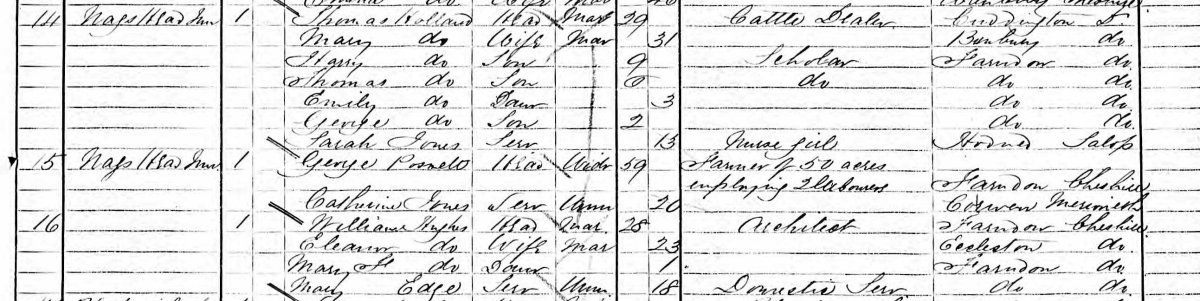 14 Nags Head Inn 1 Thomas Holland Head Mar 29 Cattle Dealer Cuddington Do
Mary do Wife Mar 31 Bunbury do
Harry do Son 9 Scholar Farndon do
Thomas do Son 6 do do do
Emily do Daur 3 do do
George do Son 2 do do
Sarah Jones Serv 13 Nurse girl Hodnet Salop
15 Nags Head Inn 1 George Head Widr 59 Farmer of 50 acres
employing 2 labourers Farndon Cheshire
Catherine Jones Serv Unm 20 Corwen Merioneth
16 1 William Hughes Head Mar. 28 Architect Farndon Cheshire
Eleanor do Wife Mar 23 Eccleston do
Mary do Daur 1 Farndon do
Mary Edge Serv Unm 18 Domestic Serv do do